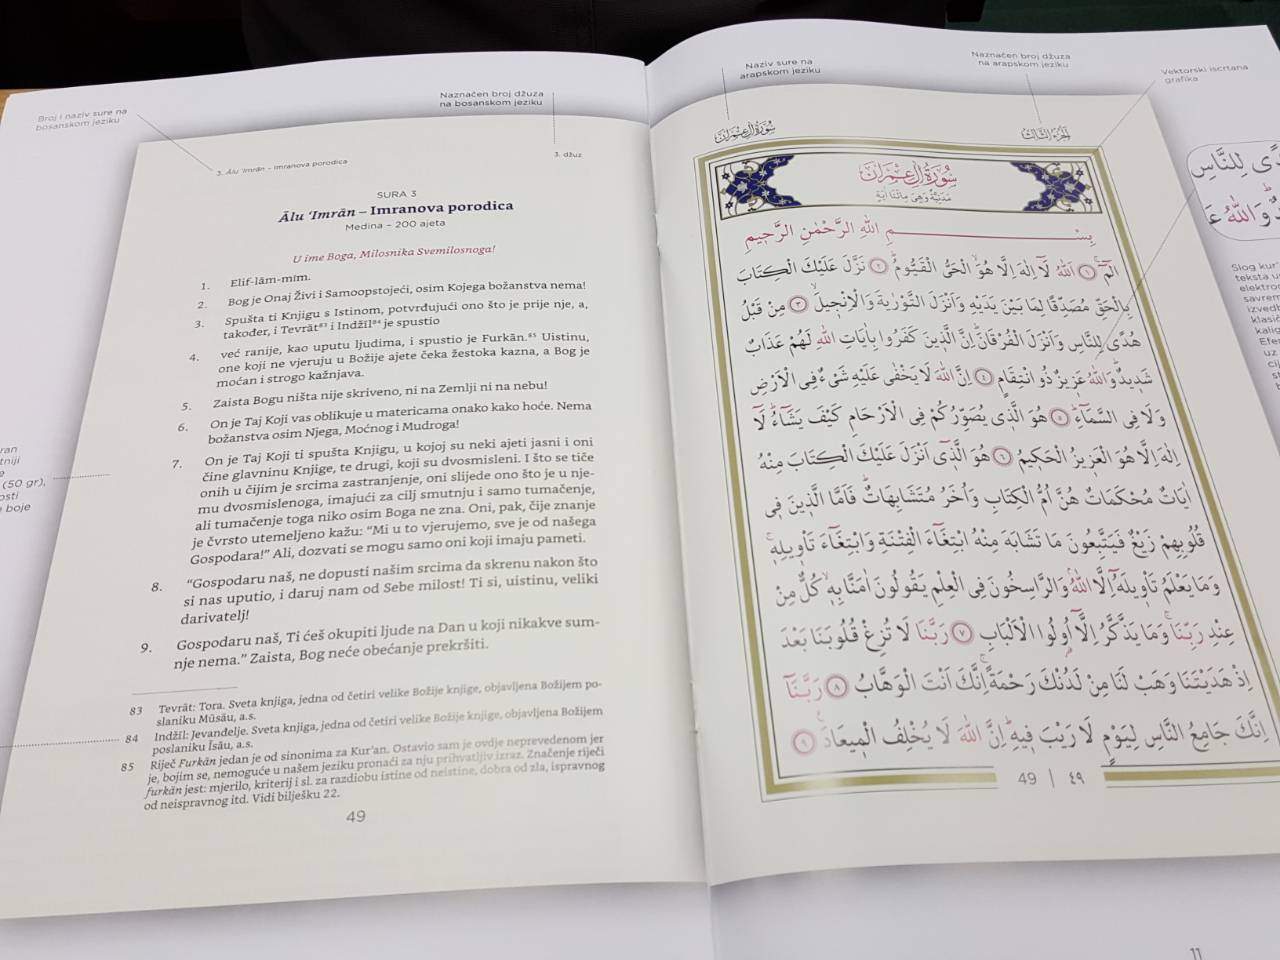 Broj i naziv sure na
bosanskom jeziku
Naznačen broj džuza
na bosanskom jeziku
3. Ālu ‘Imrān – Imranova porodica
3. džuz
SURA 3
Ālu ‘Imrān – Imranova porodica
Medina – 200 ajeta
U ime Boga, Milosnika Svemilosnoga!
1. Elif-lām-mīm.
2. Bog je Onaj Živi i Samoopstojeći, osim Kojega božanstva nema!
3. Spušta ti Knjigu s Istinom, potvrđujući ono što je prije nje, a,
također, i Tevrāt⁸³ i Indžīl⁸⁴ je spustio
4. već ranije, kao uputu ljudima, i spustio je Furkān.⁸⁵ Uistinu,
one koji ne vjeruju u Božije ajete čeka žestoka kazna, a Bog je
moćan i strogo kažnjava.
5. Zaista Bogu ništa nije skriveno, ni na Zemlji ni na nebu!
6. On je Taj Koji vas oblikuje u matericama onako kako hoće. Nema
božanstva osim Njega, Moćnog i Mudroga!
7. On je Taj Koji ti spušta Knjigu, u kojoj su neki ajeti jasni i oni
čine glavninu Knjige, te drugi, koji su dvosmisleni. I što se tiče
onih u čijim je srcima zastranjenje, oni slijede ono što je u nje-
mu dvosmislenoga, imajući za cilj smutnju i samo tumačenje,
ali tumačenje toga niko osim Boga ne zna. Oni, pak, čije znanje
je čvrsto utemeljeno kažu: “Mi u to vjerujemo, sve je od našega
Gospodara!” Ali, dozvati se mogu samo oni koji imaju pameti.
8. “Gospodaru naš, ne dopusti našim srcima da skrenu nakon što
si nas uputio, i daruj nam od Sebe milost! Ti si, uistinu, veliki
darivatelj!
9. Gospodaru naš, Ti ćeš okupiti ljude na Dan u koji nikakve sum-
nje nema.” Zaista, Bog neće obećanje prekršiti.
83 Tevrāt: Tora. Sveta knjiga, jedna od četiri velike Božije knjige, objavljena Božijem po-
slaniku Mūsāu, a.s.
84 Indžīl: Jevanđelje. Sveta knjiga, jedna od četiri velike Božije knjige, objavljena Božijem
poslaniku Īsāu, a.s.
85 Riječ Furkān jedan je od sinonima za Kur’an. Ostavio sam je ovdje neprevedenom jer
je, bojim se, nemoguće u našem jeziku pronaći za nju prihvatljiv izraz. Značenje riječi
furkān jest: mjerilo, kriterij i sl. za razdiobu istine od neistine, dobra od zla, ispravnog
od neispravnog itd. Vidi bilješku 22.
49
(50 gr),
boje
Naziv sure na
arapskom jeziku
Naznačen broj džuza
na arapskom jeziku
Vektorski iscrtana
grafika
سُورَةُ اٰلِ عِمْرَانَ
اَلْجُزْءُ الثَّالِثُ
سُورَةُ اٰلِ عِمْرَانَ
مَدَنِيَّةٌ وَهِيَ مِائَتَا اٰيَةٍ
بِسْمِ اللهِ الرَّحْمٰنِ الرَّحِيمِ
الٓمٓ ١ اَللهُ لَٓا اِلٰهَ اِلَّا هُوَ الْحَيُّ الْقَيُّومُ ٢ نَزَّلَ عَلَيْكَ الْكِتَابَ
بِالْحَقِّ مُصَدِّقًا لِمَا بَيْنَ يَدَيْهِ وَاَنْزَلَ التَّوْرٰيةَ وَالْاِنْجِيلَ ٣ مِنْ قَبْلُ
هُدًى لِلنَّاسِ وَاَنْزَلَ الْفُرْقَانَ اِنَّ الَّذِينَ كَفَرُوا بِاٰيَاتِ اللهِ لَهُمْ عَذَابٌ
شَدِيدٌ وَاللهُ عَزِيزٌ ذُو انْتِقَامٍ ٤ اِنَّ اللهَ لَا يَخْفٰى عَلَيْهِ شَيْءٌ فِي الْاَرْضِ
وَلَا فِي السَّمَٓاءِ ٥ هُوَ الَّذِي يُصَوِّرُكُمْ فِي الْاَرْحَامِ كَيْفَ يَشَٓاءُ لَٓا
اِلٰهَ اِلَّا هُوَ الْعَزِيزُ الْحَكِيمُ ٦ هُوَ الَّذِٓي اَنْزَلَ عَلَيْكَ الْكِتَابَ مِنْهُ
اٰيَاتٌ مُحْكَمَاتٌ هُنَّ اُمُّ الْكِتَابِ وَاُخَرُ مُتَشَابِهَاتٌ فَاَمَّا الَّذِينَ فِي
قُلُوبِهِمْ زَيْغٌ فَيَتَّبِعُونَ مَا تَشَابَهَ مِنْهُ ابْتِغَٓاءَ الْفِتْنَةِ وَابْتِغَٓاءَ تَأْوِيلِهِ
وَمَا يَعْلَمُ تَأْوِيلَهُٓ اِلَّا اللهُ وَالرَّاسِخُونَ فِي الْعِلْمِ يَقُولُونَ اٰمَنَّا بِهِ كُلٌّ مِنْ
عِنْدِ رَبِّنَا وَمَا يَذَّكَّرُ اِلَّٓا اُولُوا الْاَلْبَابِ ٧ رَبَّنَا لَا تُزِغْ قُلُوبَنَا بَعْدَ
اِذْ هَدَيْتَنَا وَهَبْ لَنَا مِنْ لَدُنْكَ رَحْمَةً اِنَّكَ اَنْتَ الْوَهَّابُ ٨ رَبَّنَٓا
اِنَّكَ جَامِعُ النَّاسِ لِيَوْمٍ لَا رَيْبَ فِيهِ اِنَّ اللهَ لَا يُخْلِفُ الْمِيعَادَ ٩
49 | ٤٩
لِلنَّاسِ
وَاللهُ
Slog kur’
teksta u
11